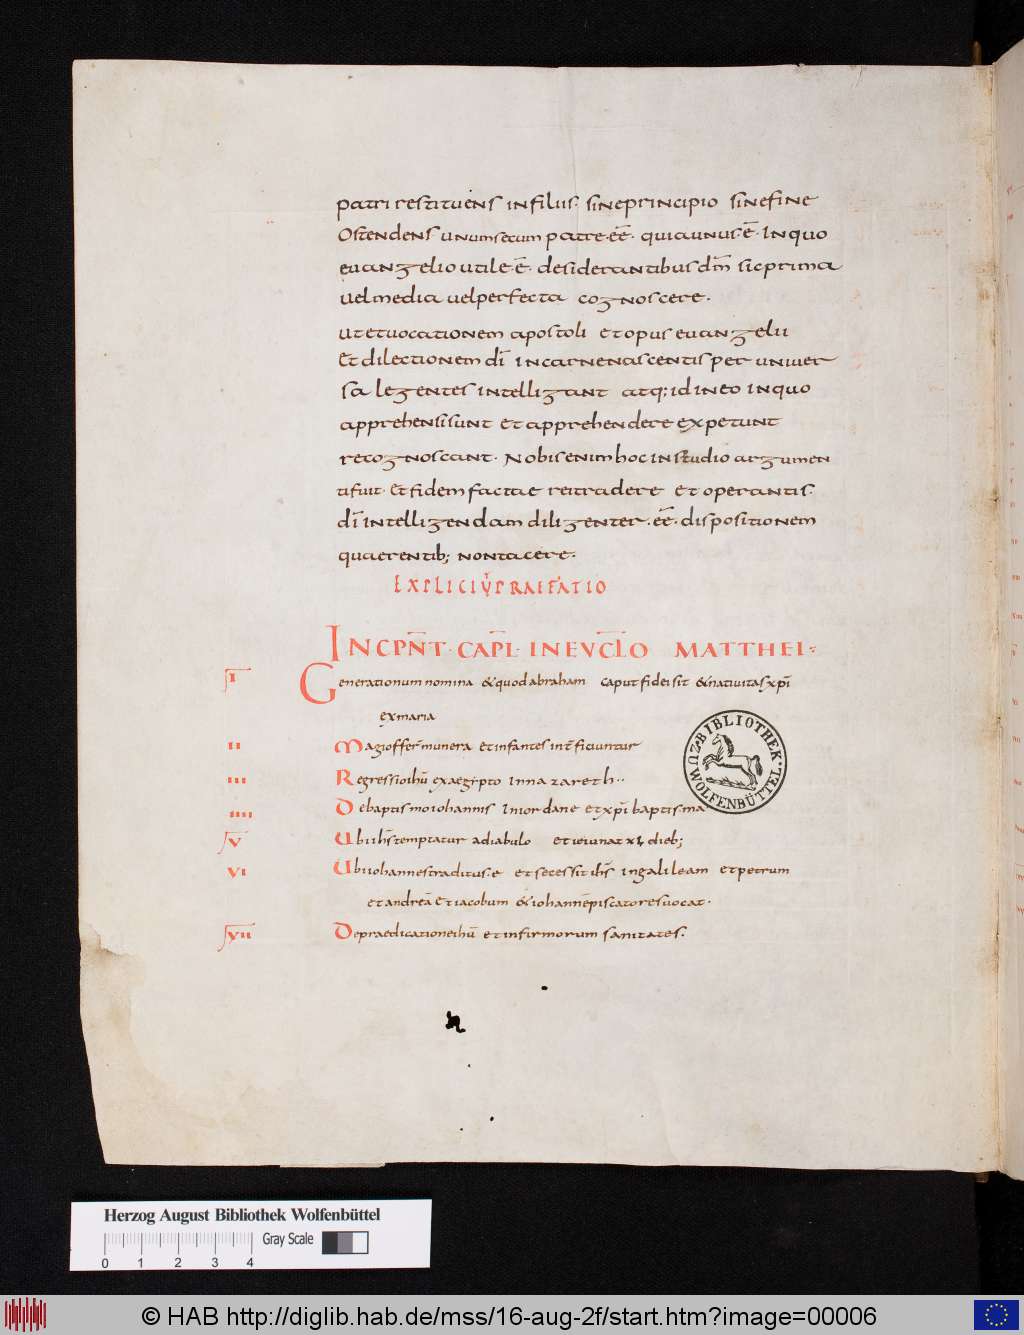 patri restituens in filiis. sine principio sine fine
Ostendens unum se cum patre. eē. quia unus. ē. In quo
euangelio utile. ē. desiderantibus dm̄ sic prima
uel media uel perfecta cognoscere.
ut et uocationem apostoli et opus euangelii
Et dilectionem dī in carne nascentis per uniuer
sa legentes intelligant atq; id in eo in quo
apprehensi sunt et apprehendere expetunt
recognoscant. Nobis enim hoc in studio argumen
ti fuit. Et fidem factae rei tradere et operantis.
dī intelligendam diligenter. eē. dispositionem
quaerentib; non tacere.
EXPLICIT PRAEFATIO
INCPN̄T. CAPL̄. IN EVCLO MATTHEI
I Generationum nomina & quod abraham caput fidei sit & natiuitas xp̄i
ex maria
II Magi offer̄ munera et infantes int̄ficiuntur
III Regressio ihū ex aegipto In nazareth..
IIII De baptismo iohannis In iordane et xp̄i baptisma
V Ubi ihs̄ temptatur a diabulo et ieiunat xl dieb;
VI Ubi iohannes traditus. e et secessit ihs̄ in galileam et petrum
et andreā Et iacobum & iohannē piscatores uocat.
VII De praedicatione ihū et infirmorum sanitates.
BIBLIOTHEK. ZU WOLFENBÜTTEL.
Herzog August Bibliothek Wolfenbüttel
Gray Scale
0 1 2 3 4
© HAB http://diglib.hab.de/mss/16-aug-2f/start.htm?image=00006